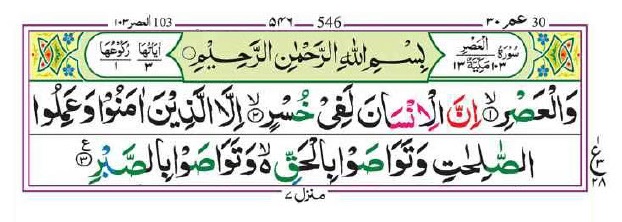 عم ٣٠ 30
546 ٥٤٦
103 العصر ١٠٣
سُوْرَةُ الْعَصْرِ ١٠٣ مَكِّيَّةٌ ١٣
بِسْمِ اللّٰهِ الرَّحْمٰنِ الرَّحِيْمِ
اٰيَاتُهَا ٣ رُكُوْعُهَا ١
وَالْعَصْرِ ۙ﴿۱﴾ اِنَّ الْاِنْسَانَ لَفِیْ خُسْرٍ ۙ﴿۲﴾ اِلَّا الَّذِیْنَ اٰمَنُوْا وَ عَمِلُوا
الصّٰلِحٰتِ وَ تَوَاصَوْا بِالْحَقِّ ۙ۬ وَ تَوَاصَوْا بِالصَّبْرِ ﴿۳﴾ع
ع ٣ ٢٨
منزل ٧